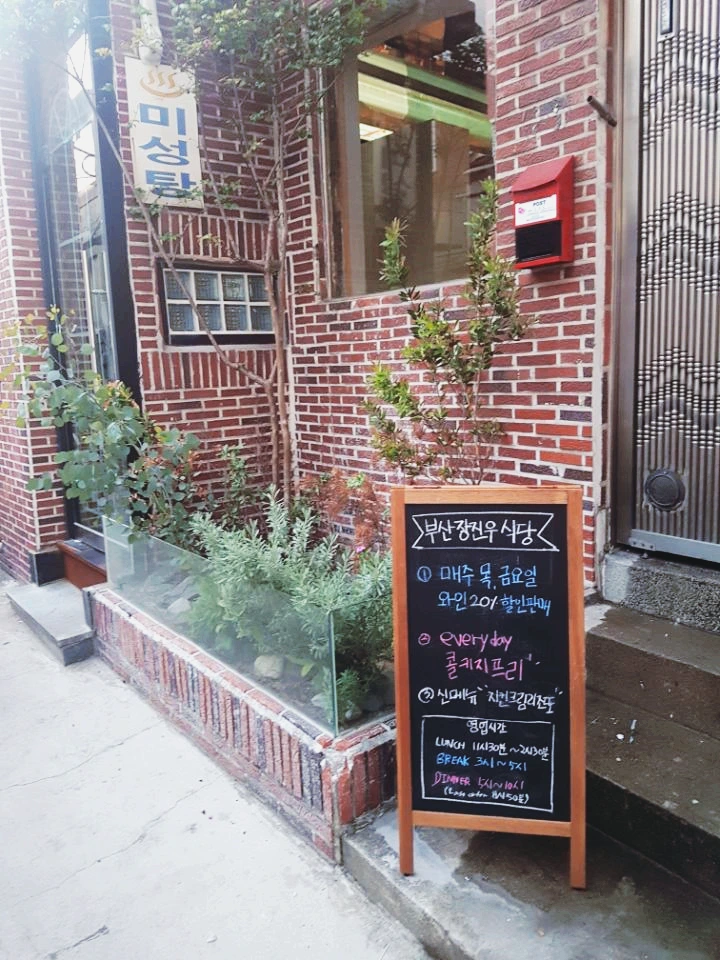 미성탕
POST
부산장진우식당
① 매주 목, 금요일
와인 20% 할인판매
② everyday
콜키지프리
③ 신메뉴 "치킨크림리조또"
영업시간
LUNCH 11시30분 ~ 2시30분
BREAK 3시 ~ 5시
DINNER 5시 ~ 10시
(Last order 8시 50분)